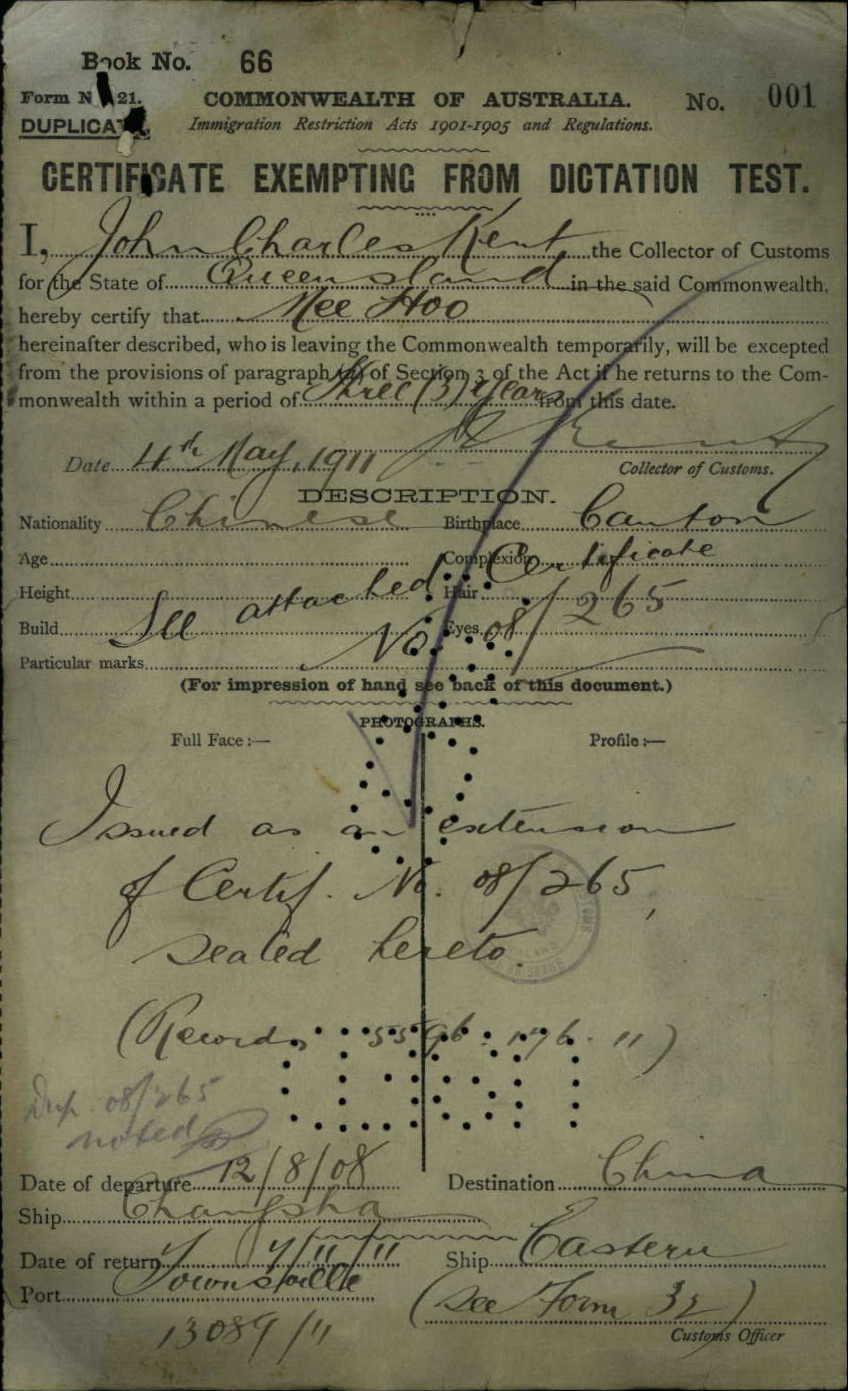 Book No. 66
Form No 21.
COMMONWEALTH OF AUSTRALIA. No. 001
DUPLICATE.
Immigration Restriction Acts 1901-1905 and Regulations.
CERTIFICATE EXEMPTING FROM DICTATION TEST.
I, John Charles Kent the Collector of Customs
for the State of Queensland in the said Commonwealth,
hereby certify that Mee Hoo
hereinafter described, who is leaving the Commonwealth temporarily, will be excepted
from the provisions of paragraph of Section 3 of the Act if he returns to the Com-
monwealth within a period of Three (3) Years from this date.
Date 4th May, 1911
Collector of Customs.
DESCRIPTION.
Nationality Chinese Birthplace Canton
Age Complexion
Height Hair
Build Eyes
See attached Certificate
No 08/265
Particular marks
(For impression of hand see back of this document.)
PHOTOGRAPHS.
Full Face :— Profile :—
Issued as an extension
of Certif. No. 08/265,
sealed hereto.
(Records 176.11)
Dup. 08/265
noted
Date of departure 12/8/08 Destination China
Ship Changsha
Date of return 7/11/11 Ship Eastern
Port Townsville (See Form 32)
13089/11 Customs Officer